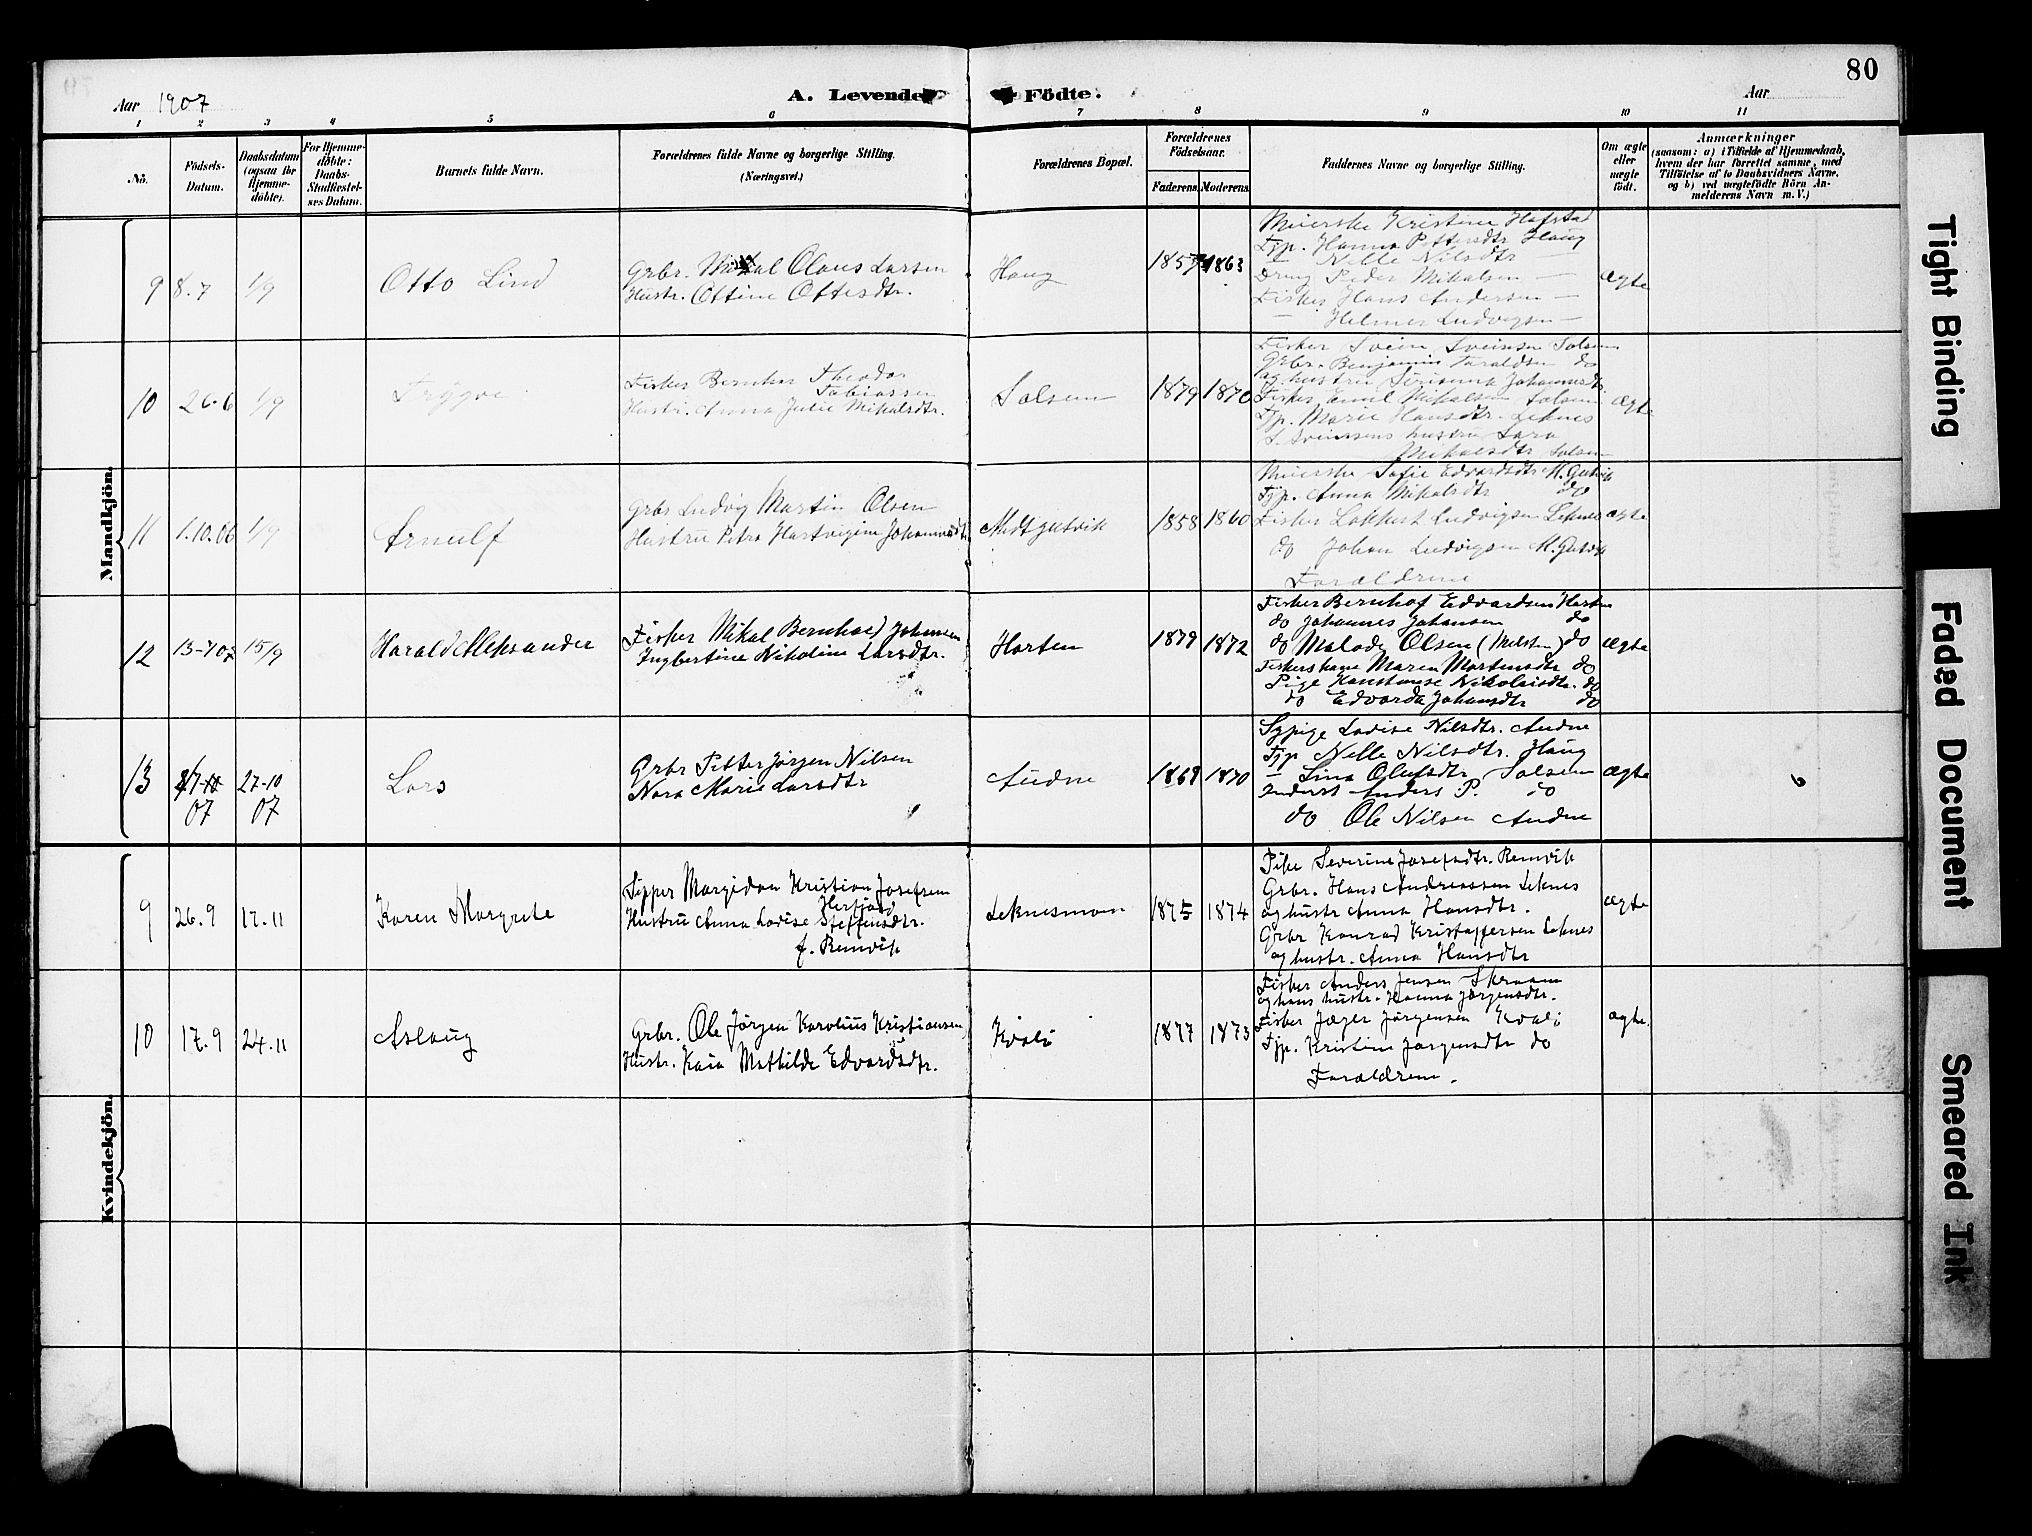 80
Aar 1907
A. Levende
Födte.
Aar
1 2 3 4 5 6 7 8 9 10 11
No.
Födsels-Datum.
Daabsdatum (ogsaa for Hjemme-döbte).
For Hjemme-döbte: Daabs-Stadfæstel-ses Datum.
Barnets fulde Navn.
Forældrenes fulde Navne og borgerlige Stilling. (Næringsvei.)
Forældrenes Bopæl.
Forældrenes Födselsaar.
Faderens Moderens
Faddernes Navne og borgerlige Stilling.
Om ægte eller uægte födt.
Anmærkninger
(saasom: a) i Tilfælde af Hjemmedaab,
hvem der har forrettet samme, med
Tilföielse af to Daabsvidners Navne,
og b) ved uægtefödte Börn An-
melderens Navn m. V.)
Mandkjön.
9 8.7 1/9 Otto Lind
Grbr. Mikal Olaus Larsen
Hustr. Ottine Ottesdtr.
Haug 1857 1863
Meierske Kristine Hafstad
Tjp. Hanna Pettersdtr Haug
— Nelle Nilsdtr —
Dreng Peder Mikalsen —
Fisker Hans Andersen —
— Helmer Ludvigsen —
ægte
10 26.6 1/9 Trygve
Fisker Bernhar Theodor
Tobiassen
Hustr. Anna Julie Mikalsdtr.
Solsem 1879 1870
Fisker Svein Sveinsen Solsem
Grbr. Benjamin Taraldsen do
og hustru Johannesdtr
Fisker Emil Mikalsen Solsem
Tjp. Marie Hansdtr. Leknes
S. Sveinsens hustru Sara
Mikalsdtr Solsem
ægte
11 1.10.06 1/9 Arnulf
Grbr Ludvig Martin Olsen
Hustru Petra Hartvigine Johannesdtr
Midtgutvik 1858 1860
Meierske Sofie Edvardsdtr M. Gutvik
Tjp. Anna Mikalsdtr do
Fisker Ludvigsen Leknes
do Johan Ludvigsen M. Gutvik
Forældrene
ægte
12 13-7 07 15/9 Harald Aleksander
Fisker Mikal Bernhard Johansen
Ingbertine Nikoline Larsdtr.
Horten 1879 1872
Fisker Bernhof Edvardsen Horten
do Johannes Johansen do
do Olsen do
Maren Martinsdtr do
Pige Nikolaisdtr. do
do Edvarda Johansdtr do
ægte
13 07 27-10 07 Lars
Grbr Petter Jörgen Nilsen
Nora Marie Larsdtr
Audne 1869 1870
Sypige Lovise Nilsdtr. Audne
Tjp Nelle Nilsdtr. Haug
— Lina Olufsdtr Solsem
Inderst Anders P. do
do Ole Nilsen Audne
ægte
Kvindekjön.
9 26.9 17.11 Karen Margrete
Sipper Margidon Kristian Josefsen
Herfjord
Hustru Anna Lovise Steffensdtr.
f. Remvik
Leknesmoen 1875 1874
Pike Severine Josefsdtr. Remvik
Grbr. Hans Andreassen Leknes
og hustr Anna Hansdtr.
Grbr Konrad Kristoffersen Leknes
og hustr. Anna Hansdtr
ægte
10 17.9 24.11 Aslaug
Grbr. Ole Jörgen Karolius Kristiansen
Hustr. Kaia Mathilde Edvardsdtr.
Kvalö 1877 1873
Fisker Anders Jensen
og hans hustr. Hanna Jörgensdtr.
Fisker Jörgensen Kvalö
Tjp. Kristine Jörgensdtr do
Forældrene.
ægte.
Tight Binding
Faded Document
Smeared Ink